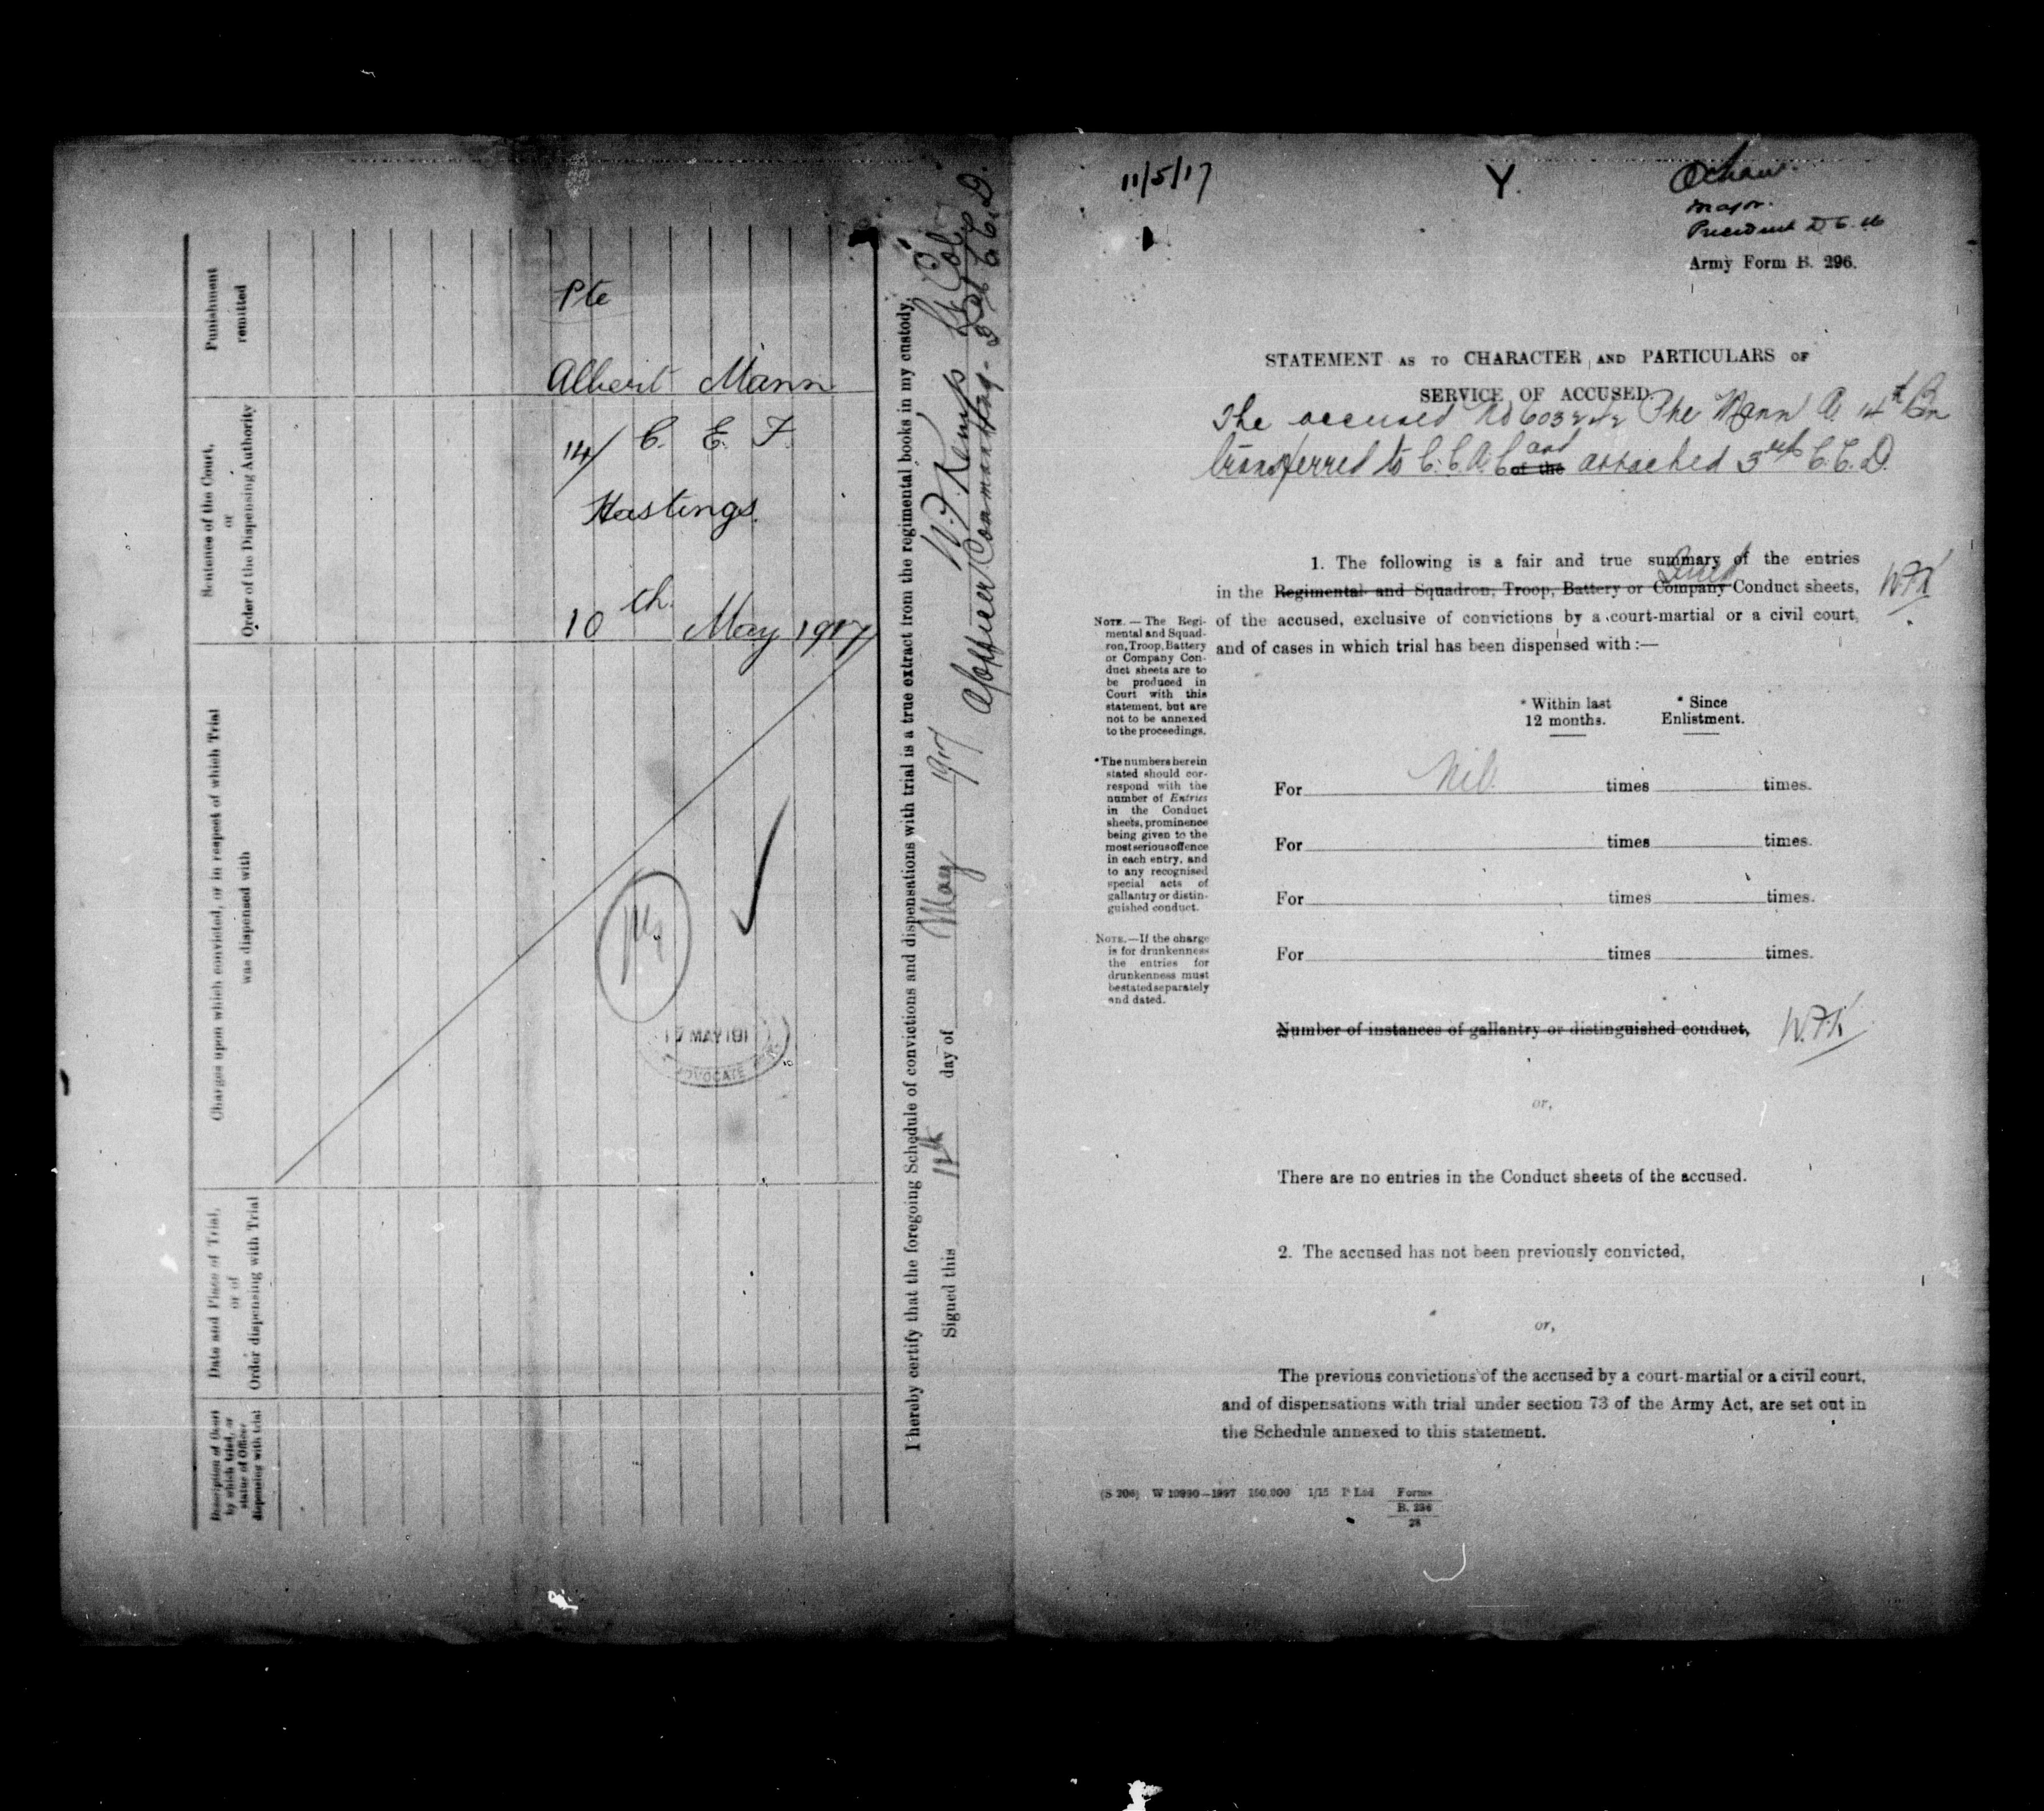 Punishment
remitted
Sentence of the Court,
or
Order of the Dispensing Authority
Charges upon which convicted, or in respect of which Trial
was dispensed with
Date and Place of Trial,
or of
Order dispensing with Trial
Description of Court
by which tried, or
status of Officer
dispensing with trial
Pte
Albert Mann
14/ C. E. F.
Hastings.
10th May 1917
MAY 191
ADVOCATE
I hereby certify that the foregoing Schedule of convictions and dispensations with trial is a true extract from the regimental books in my custody.
Signed this 11th day of May 1917
W.F. Kemp Lt Col
Officer Commanding
11/5/17
Y.
Major.
President D.C.M
Army Form B. 296.
STATEMENT AS TO CHARACTER AND PARTICULARS OF
SERVICE OF ACCUSED.
The accused No Pte Mann A. 14th Bn
transferred to C.C.A.C of the and attached 3rd C.C.D.
1. The following is a fair and true summary of the entries
in the Regimental and Squadron, Troop, Battery or Company Conduct sheets, W.F.K
of the accused, exclusive of convictions by a court-martial or a civil court,
and of cases in which trial has been dispensed with :—
NOTE. — The Regi-
mental and Squad-
ron, Troop, Battery
or Company Con-
duct sheets are to
be produced in
Court with this
statement, but are
not to be annexed
to the proceedings.
* Within last
12 months.
* Since
Enlistment.
*The numbers herein
stated should cor-
respond with the
number of Entries
in the Conduct
sheets, prominence
being given to the
most serious offence
in each entry, and
to any recognised
special acts of
gallantry or distin-
guished conduct.
For Nil. times times.
For times times.
For times times.
For times times.
NOTE.—If the charge
is for drunkenness
the entries for
drunkenness must
be stated separately
and dated.
Number of instances of gallantry or distinguished conduct, W.F.K
or,
There are no entries in the Conduct sheets of the accused.
2. The accused has not been previously convicted,
or,
The previous convictions of the accused by a court-martial or a civil court,
and of dispensations with trial under section 73 of the Army Act, are set out in
the Schedule annexed to this statement.
(S 206) W 10990—1997 150,000 1/15 P Ltd Forms
B. 296
28